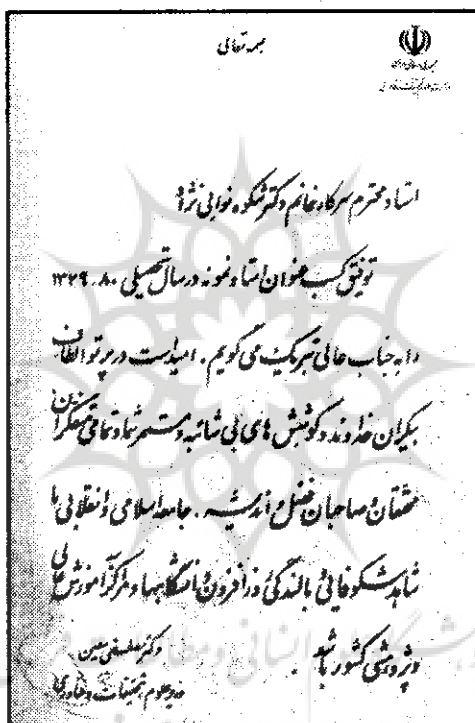 بسمه تعالی
جمهوری اسلامی ایران
وزارت علوم، تحقیقات و فناوری
استاد محترم سرکار خانم دکتر شکوه نوابی نژاد
توفیق کسب عنوان استاد نمونه در سال تحصیلی ۸۰-۱۳۷۹
را به جناب عالی تبریک می گویم . امید است در پرتو الطاف
بیکران خداوند و کوشش های بی شائبه و مستمر شما و تمامی متفکران
محققان و صاحبان فضل و اندیشه . جامعه اسلامی و انقلابی ما
شاهد شکوفائی و بالندگی روز افزون دانشگاهها و مراکز آموزش عالی
و پژوهشی کشور باشد .
دکتر مصطفی معین
وزیر علوم، تحقیقات و فناوری